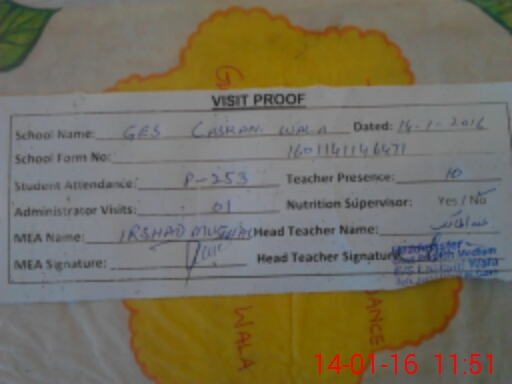 VISIT PROOF
School Name: GES LASKANI WALA Dated: 14-1-2016
School Form No: 1601141146471
Student Attendance: P-253 Teacher Presence: 10
Administrator Visits: 01 Nutrition Supervisor: Yes / No
MEA Name: IRSHAD MUGHAL Head Teacher Name:
MEA Signature: Head Teacher Signature
Headmaster
WALA
14-01-16 11:51